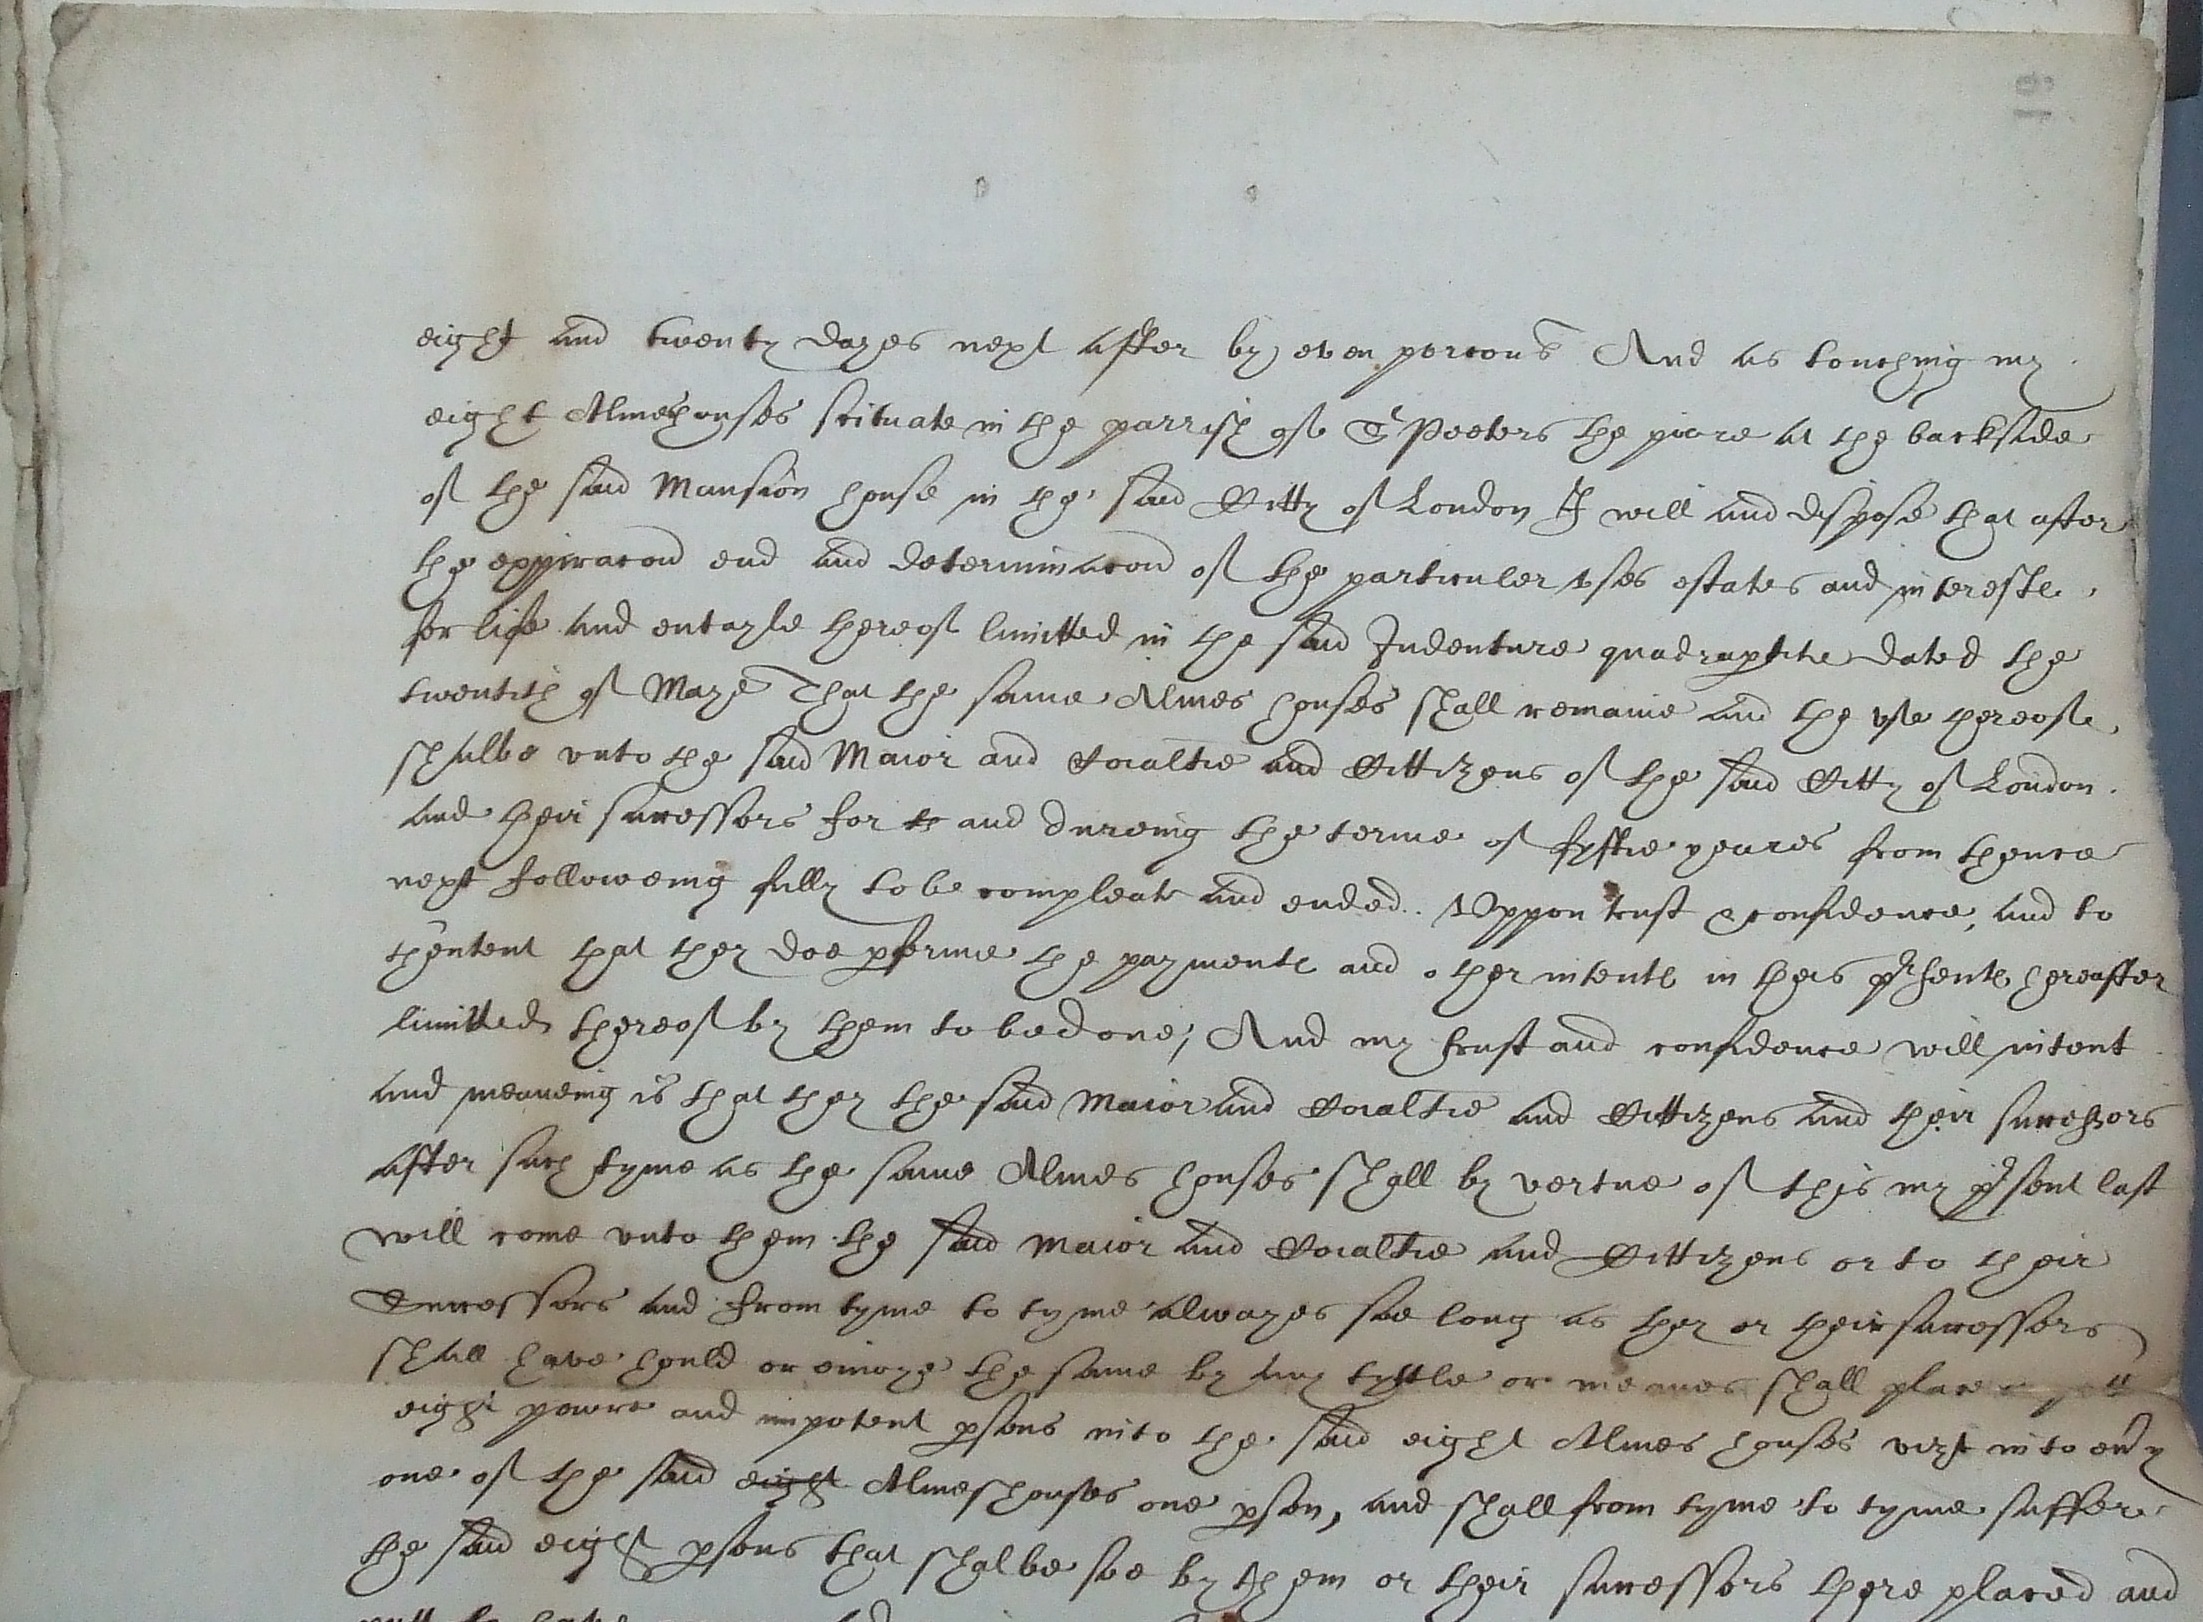 eight and twenty dayes next after by even porcons And as touching my
eight Almeshouses scituate in the parrish of St Peeters the poore at the backside
of the said Mansion house in the said Citty of London I will and dispose that after
the expiracon end and determinacon of the particuler vses estates and interestes
for life and entayle thereof limitted in the said Indenture quadrapertite dated the
twentith of Maye That the same Almes houses shall remaine and the vse thereof
shalbe vnto the said Maior and Coialtie and Cittizens of the said Citty of London
and their successors for th and dureing the terme of fyftie yeares from thence
next followeing fully to be compleate and ended. Vppon trust & confidence, and to
thentent that they doe pforme the paymentes and other intentes in theis pr'sentes hereafter
limitted thereof by them to be done; And my trust and confidence will intent
and meaneing is that they the said Maior and Coialtie and Cittizens and their successors
after such tyme as the same Almes houses shall by vertue of this my pr'sent last
will come vnto them the said Maior and Coialtie and Cittizens or to their
Successors and from tyme to tyme alwayes soe long as they or their successors
shall have hould or enioye the same by any tyttle or meanes shall place
eight poure and impotent psons into the said eight Almes houses vizt into eu'y
one of the said eight Almeshouses one pson, and shall from tyme to tyme suffer
the said eight psons that shalbe soe by them or their successors there placed and